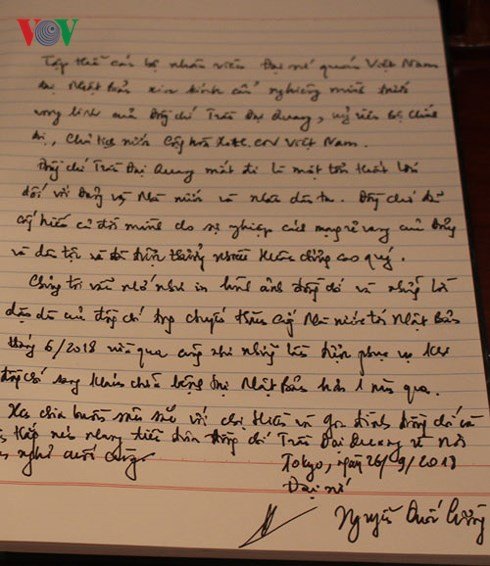 VOV
Tập thể cán bộ nhân viên Đại sứ quán Việt Nam
tại Nhật Bản xin kính cẩn nghiêng mình trước
vong linh của Đồng chí Trần Đại Quang, uỷ viên bộ chính
trị, Chủ tịch nước Cộng hòa XHCN Việt Nam.
Đồng chí Trần Đại Quang mất đi là một tổn thất lớn
đối với Đảng và Nhà nước và nhân dân ta. Đồng chí đã
cống hiến cả đời mình cho sự nghiệp cách mạng vẻ vang của Đảng
và dân tộc và đã được thưởng nhiều Huân chương cao quý.
Chúng tôi vẫn nhớ như in hình ảnh đồng chí và những lời
dặn dò của đồng chí trong chuyến thăm cấp Nhà nước tới Nhật Bản
tháng 6/2018 vừa qua cũng như những lần được phục vụ khi
đồng chí sang khám chữa bệnh tại Nhật Bản hơn 1 năm qua.
Xin chia buồn sâu sắc với chị Hiền và gia đình đồng chí và
thắp nén nhang tiễn đưa đồng chí Trần Đại Quang về nơi
an nghỉ cuối cùng.
Tokyo, ngày 26/9/2018
Đại sứ
Nguyễn Quốc Cường